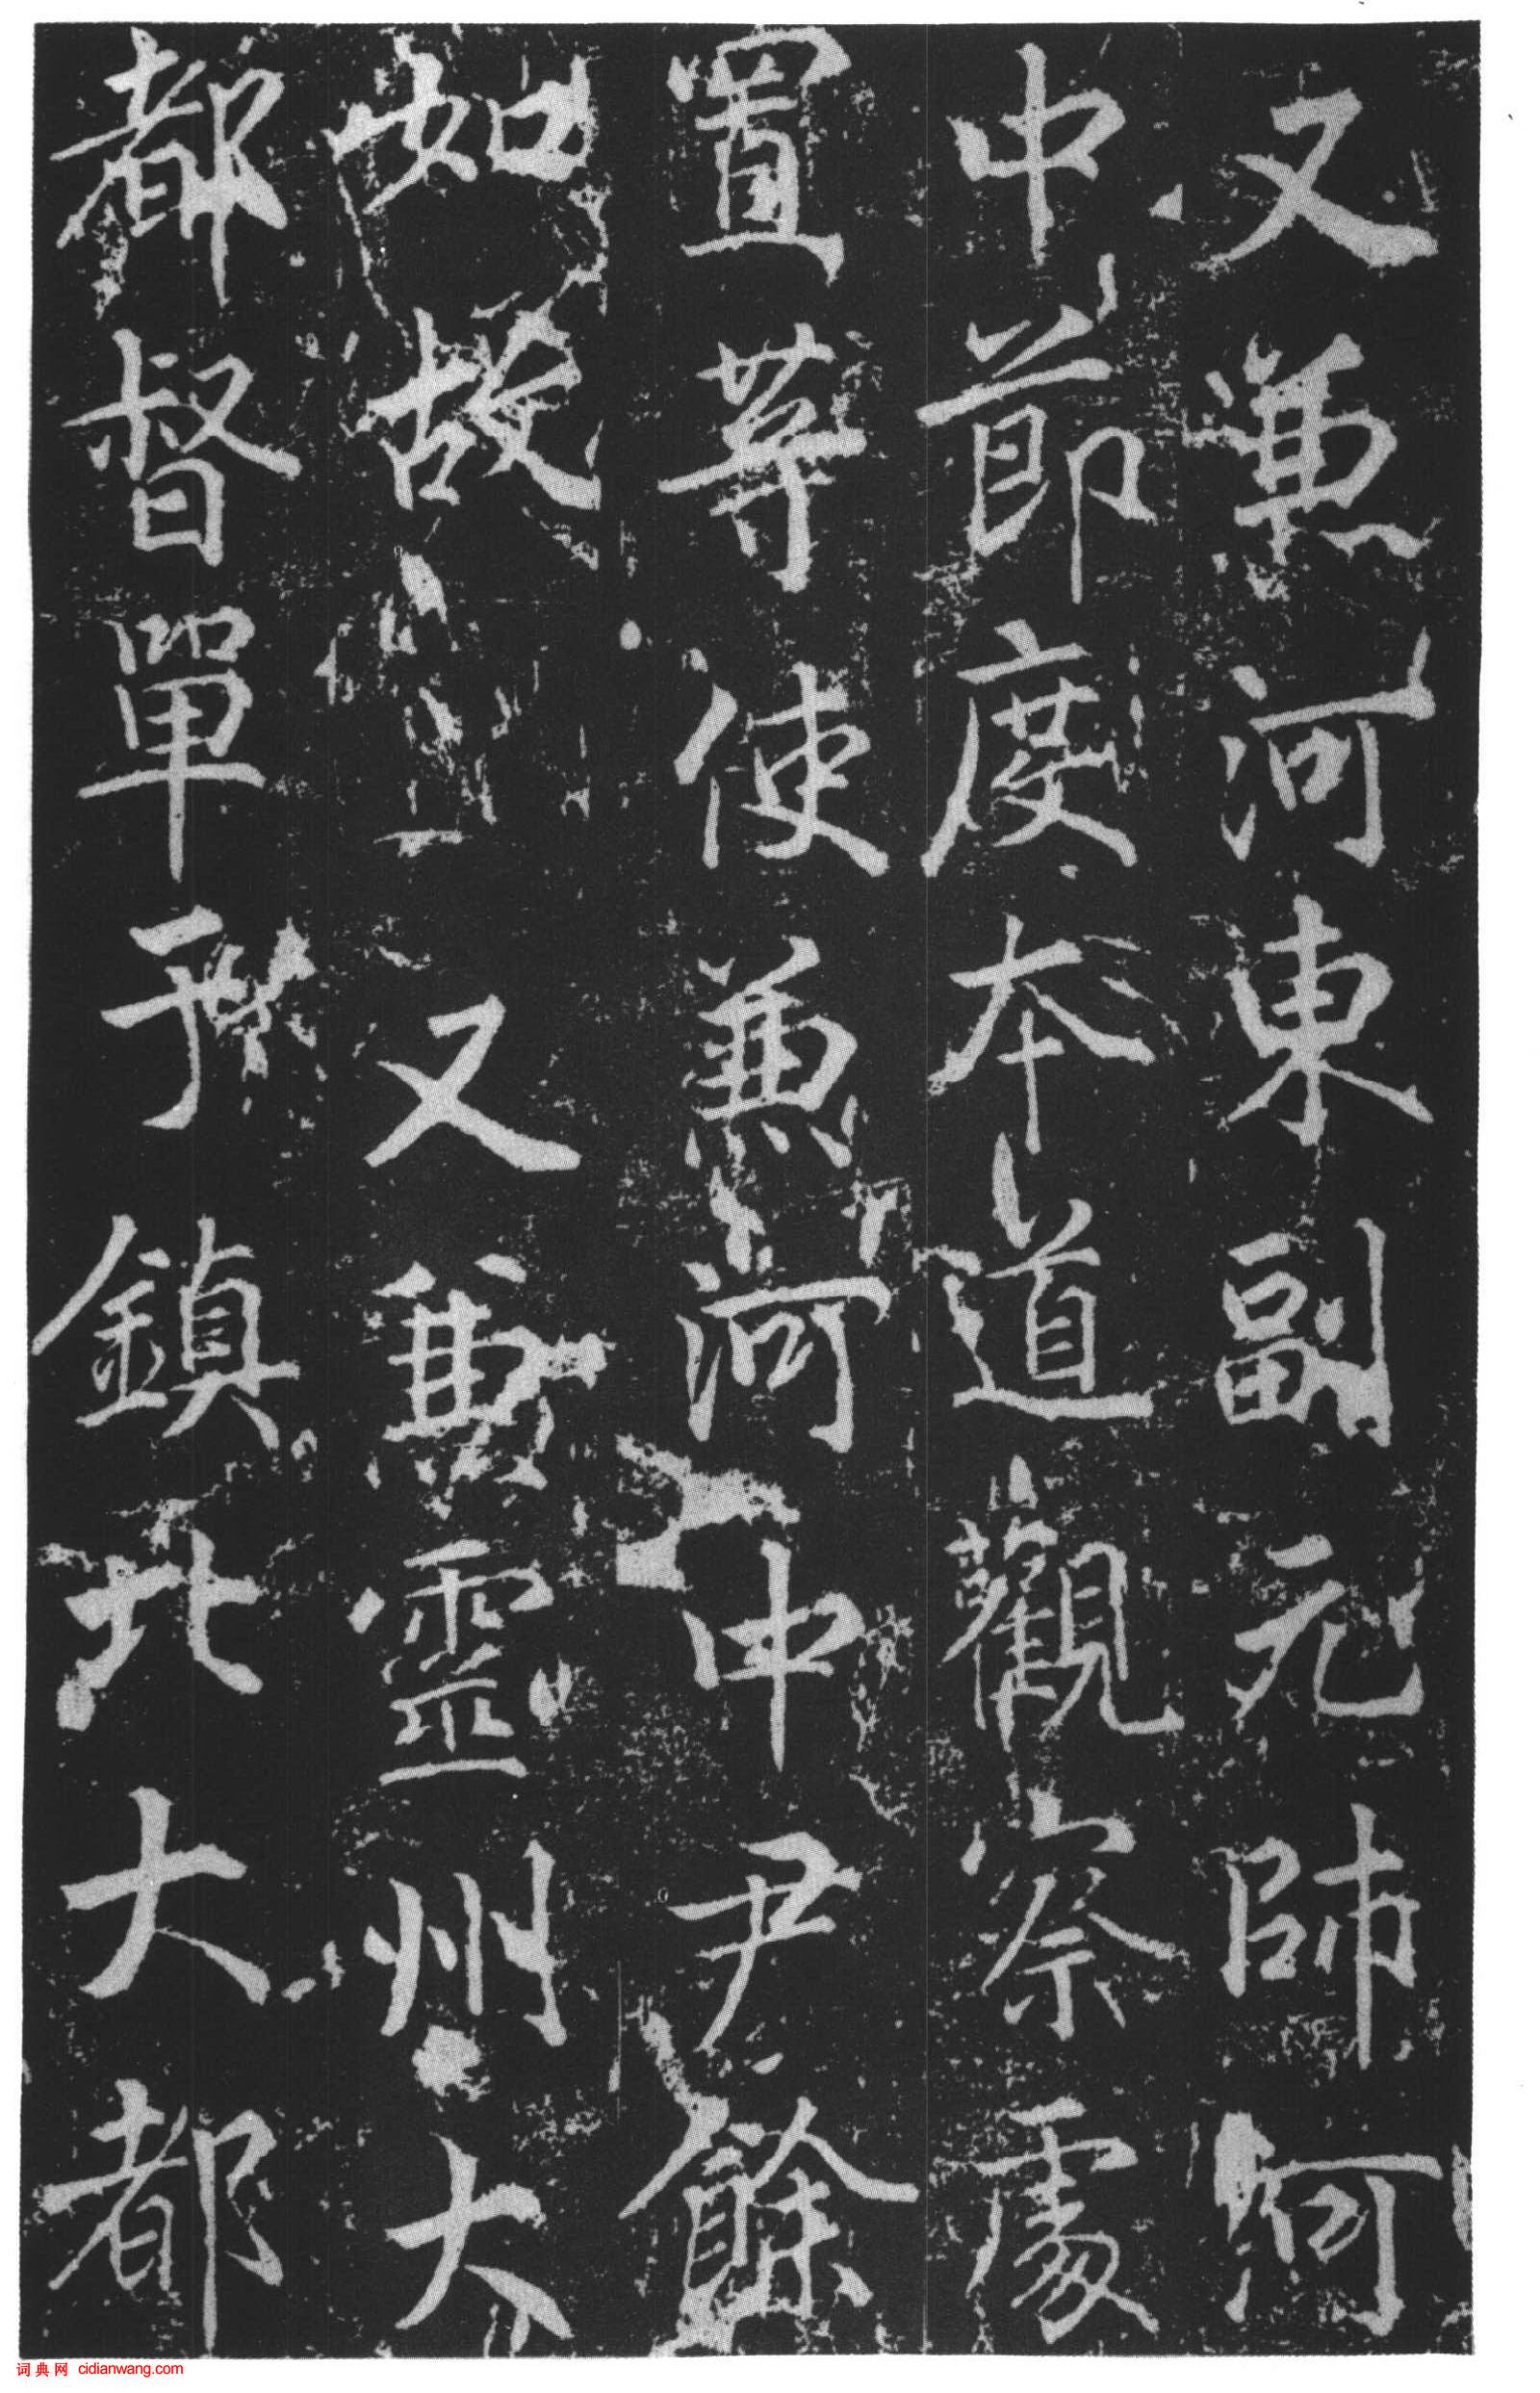 又兼河東副元帥河
中節度本道觀察處
置等使兼河中尹餘
如故又兼靈州大
都督單于鎮北大都
词典网 cidianwang.com